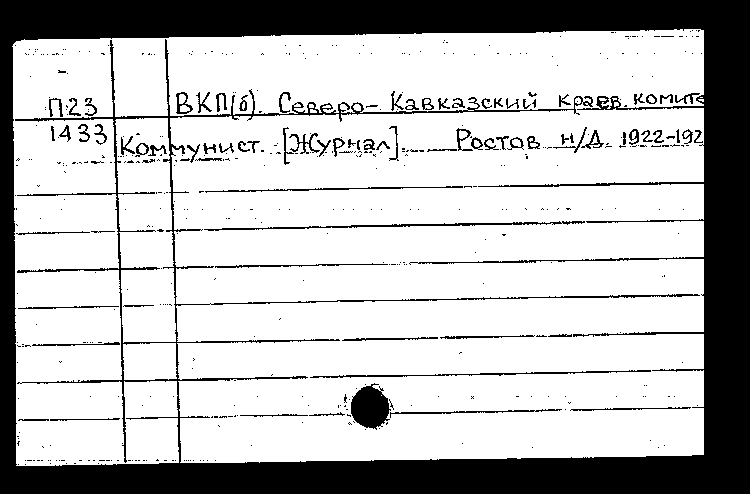 П23 ВКП(б). Северо-Кавказский краев. комите
1433 Коммунист. [Журнал]. Ростов н/Д. 1922-192